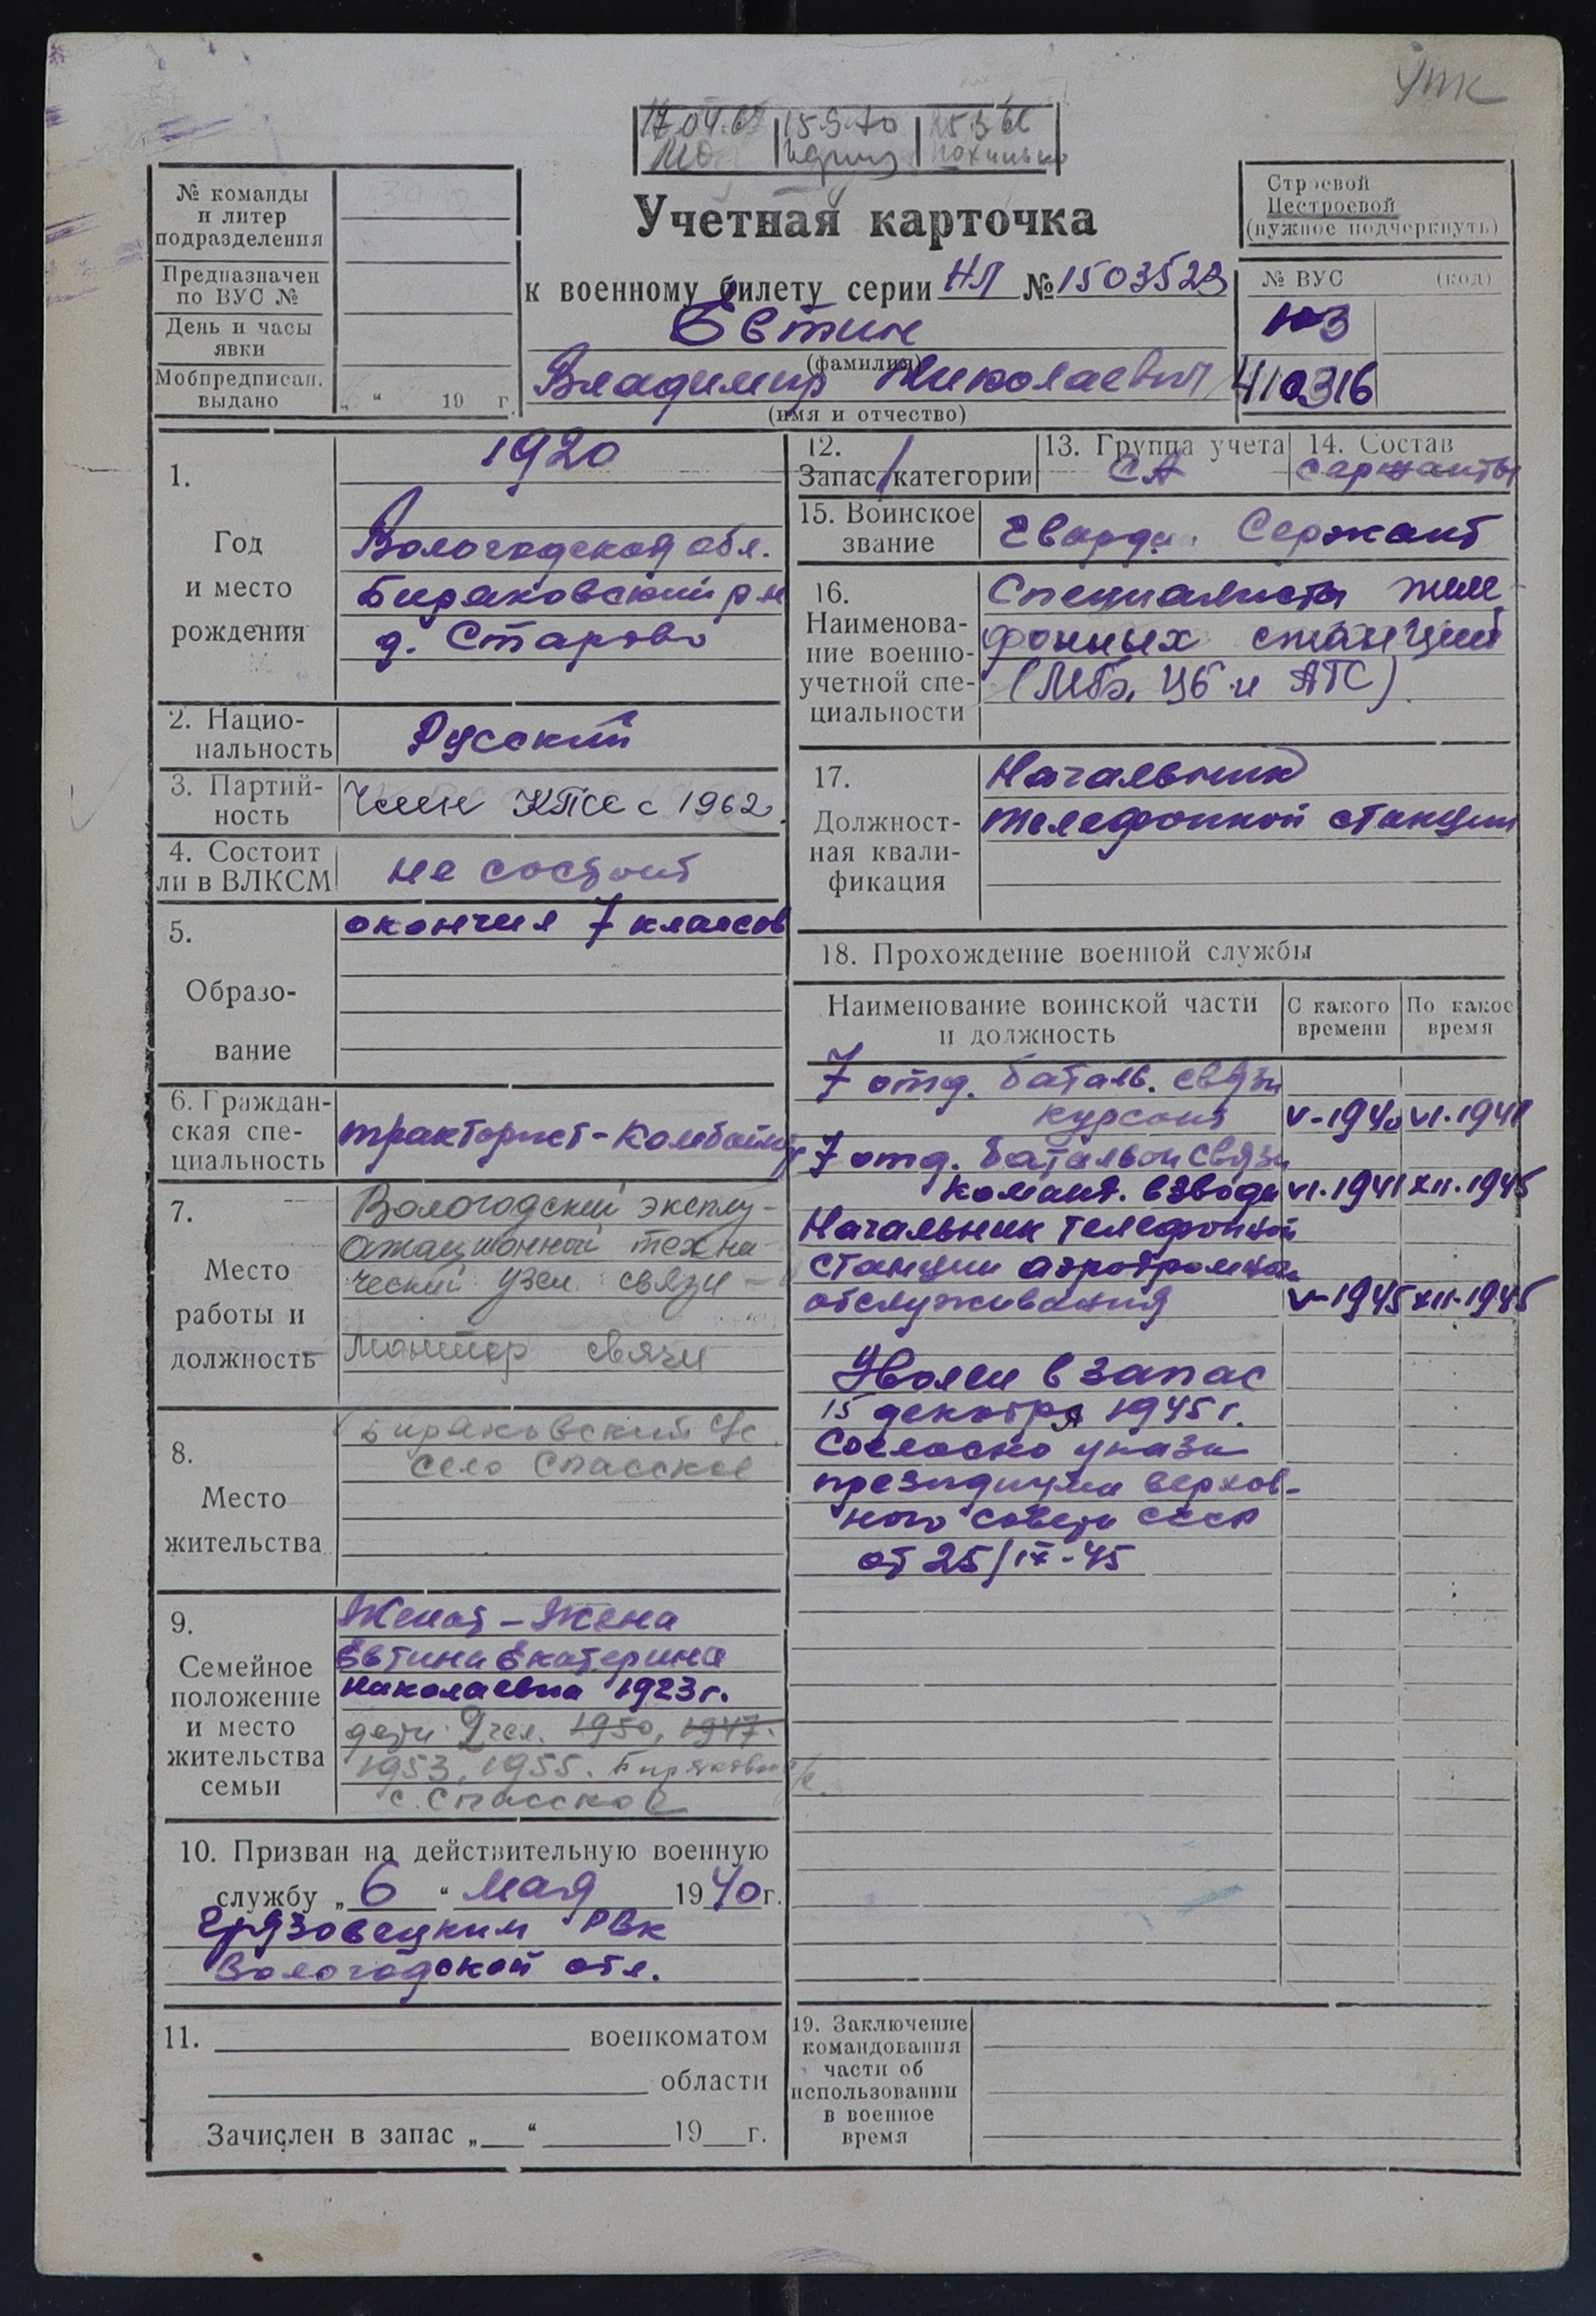 УПК
17.04.67 15.9.70 25.3.66
№ команды
и литер
подразделения
Предназначен
по ВУС №
День и часы
явки
Мобпредписан.
выдано „ “ 19 г.
Учетная карточка
к военному билету серии НЛ № 1503523
Евтин
(фамилия)
Владимир Николаевич
(имя и отчество)
Строевой
Нестроевой
(нужное подчеркнуть)
№ ВУС (код)
103
410316
1.
Год
и место
рождения
1920
Вологодская обл.
Биряковский р-н
д. Старово
2. Нацио-
нальность
Русский
3. Партий-
ность
Член КПСС с 1962.
4. Состоит
ли в ВЛКСМ
не состоит
5.
Образо-
вание
окончил 7 классов
6. Граждан-
ская спе-
циальность
тракторист-комбайнер
7.
Место
работы и
должность
Вологодский эксплу-
атационной техни-
ческий узел связи -
монтер связи
8.
Место
жительства
Биряковский с/с
село Спасское
9.
Семейное
положение
и место
жительства
семьи
Женат - Жена
Евтина Екатерина
Николаевна 1923 г.
дети 2 чел. 1950, 1947.
1953, 1955. Биряковский с/с.
с. Спасское
10. Призван на действительную военную
службу „ 6 “ мая 1940 г.
Грязовецким РВК
Вологодской обл.
11. военкоматом
области
Зачислен в запас „ “ 19 г.
12.
Запас / категории
13. Группа учета
СА
14. Состав
сержанты
15. Воинское
звание
Гварди. Сержант
16.
Наименова-
ние военно-
учетной спе-
циальности
Специалисты теле-
фонных станций
(МБ, ЦБ и АТС).
17.
Должност-
ная квали-
фикация
Начальник
телефонной станции
18. Прохождение военной службы
Наименование воинской части
и должность
С какого
времени
По какое
время
7 отд. баталь. связи
курсант V-1940 VI.1941
7 отд. батальон связи
команд. взвода VI.1941 XII.1945
Начальник телефонной
станции аэродромного
обслуживания V-1945 XII.1945
Уволен в запас
15 декабря 1945 г.
Согласно указа
президиума верхов-
ного совета СССР
от 25/IX-45
19. Заключение
командования
части об
использовании
в военное
время